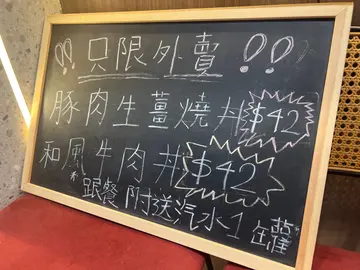 !! 只限外賣 !!
豚肉生薑燒丼 $42
和風牛肉丼 $42
跟餐附送汽水1罐